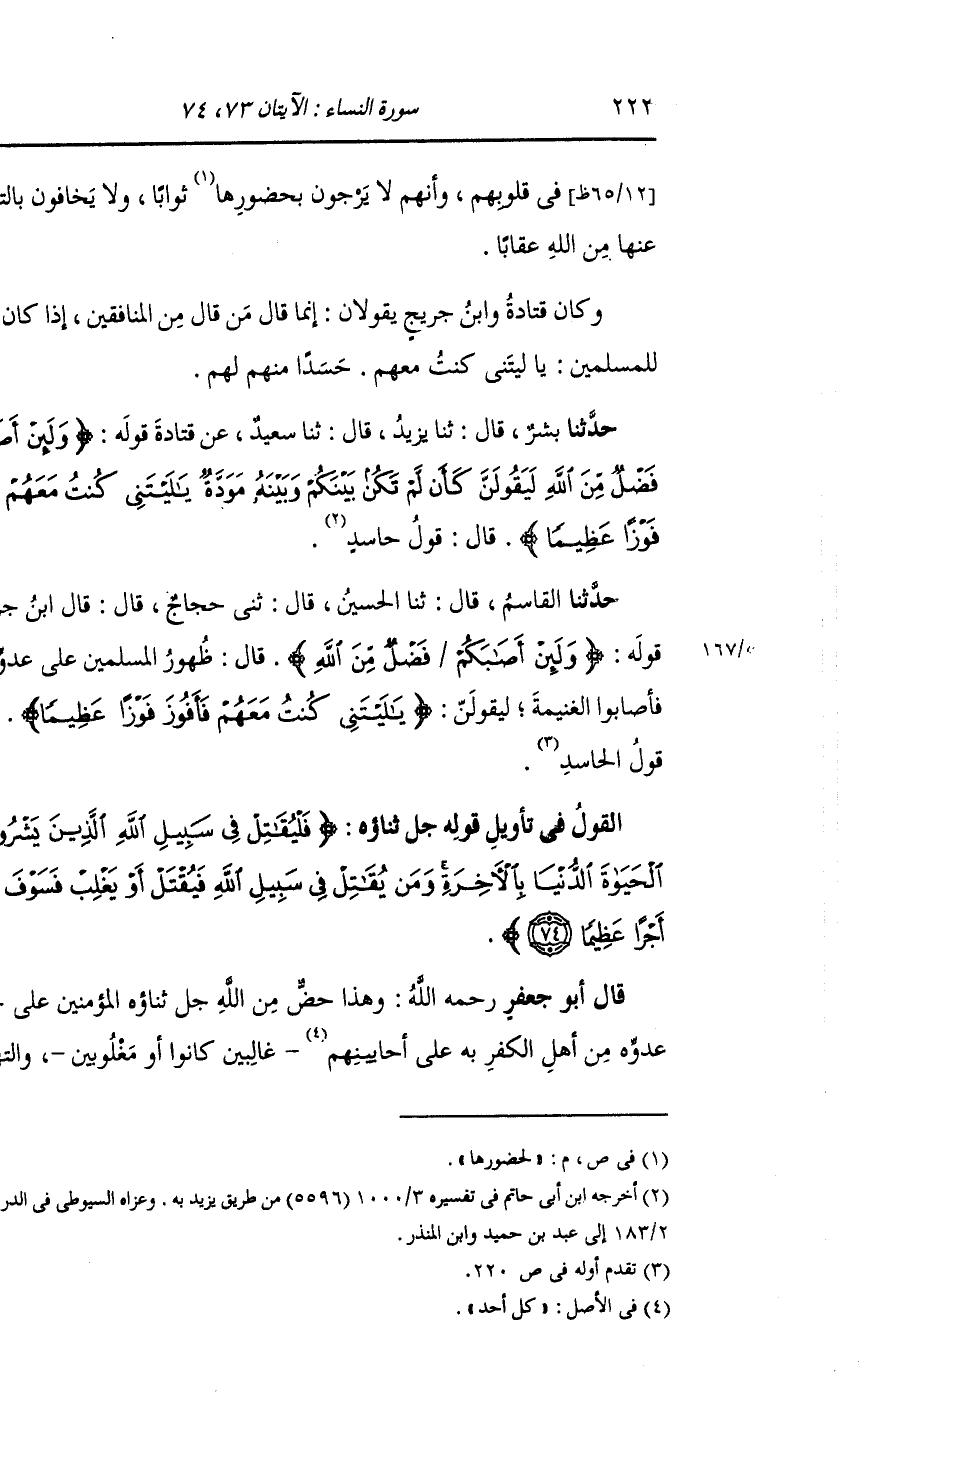 ٢٢٢ سورة النساء : الآيتان ٧٣، ٧٤
[٦٥/١٢ظ] فى قلوبِهم ، وأنهم لا يَرْجون بحضورِها(١) ثوابًا ، ولا يَخافون
عنها مِن اللهِ عقابًا .
وكان قتادةُ وابنُ جريجٍ يقولان : إنما قال مَن قال مِن المنافقين ، إذا كان
للمسلمين : يا ليتَنى كنتُ معهم . حَسَدًا منهم لهم .
حدَّثنا بشرٌ ، قال : ثنا يزيدُ ، قال : ثنا سعيدٌ ، عن قتادةَ قولَه : ﴿ وَلَئِنْ
فَضْلٌ مِّنَ ٱللَّهِ لَيَقُولَنَّ كَأَن لَّمْ تَكُنۢ بَيْنَكُمْ وَبَيْنَهُۥ مَوَدَّةٌ يَٰلَيْتَنِى كُنتُ مَعَهُمْ
فَوْزًا عَظِيمًا ﴾ . قال : قولُ حاسدٍ(٢) .
حدَّثنا القاسمُ ، قال : ثنا الحسينُ ، قال : ثنى حجاجٌ ، قال : قال ابنُ
قولَه : ﴿ وَلَئِنْ أَصَٰبَكُمْ / فَضْلٌ مِّنَ ٱللَّهِ ﴾ . قال : ظُهورُ المسلمين على
١٦٧/٥
فأصابوا الغنيمةَ ؛ ليقولَنّ : ﴿ يَٰلَيْتَنِى كُنتُ مَعَهُمْ فَأَفُوزَ فَوْزًا عَظِيمًا﴾ .
قولُ الحاسدِ(٣) .
القولُ فى تأويلِ قولِه جل ثناؤه : ﴿ فَلْيُقَٰتِلْ فِى سَبِيلِ ٱللَّهِ ٱلَّذِينَ
ٱلْحَيَوٰةَ ٱلدُّنْيَا بِٱلْأَخِرَةِۚ وَمَن يُقَٰتِلْ فِى سَبِيلِ ٱللَّهِ فَيُقْتَلْ أَوْ يَغْلِبْ فَسَوْفَ
أَجْرًا عَظِيمًا ۝٧٤ ﴾ .
قال أبو جعفرٍ رحمه اللَّهُ : وهذا حضٌّ مِن اللَّهِ جل ثناؤه المؤمنين على
عدوِّه مِن أهلِ الكفرِ به على أحايينِهم(٤) – غالِبين كانوا أو مَغْلُوبين –،
(١) فى ص ، م : « لحضورها » .
(٢) أخرجه ابن أبى حاتم فى تفسيره ١٠٠٠/٣ (٥٥٩٦) من طريق يزيد به . وعزاه السيوطى فى الدر
١٨٣/٢ إلى عبد بن حميد وابن المنذر .
(٣) تقدم أوله فى ص ٢٢٠.
(٤) فى الأصل : « كل أحد » .